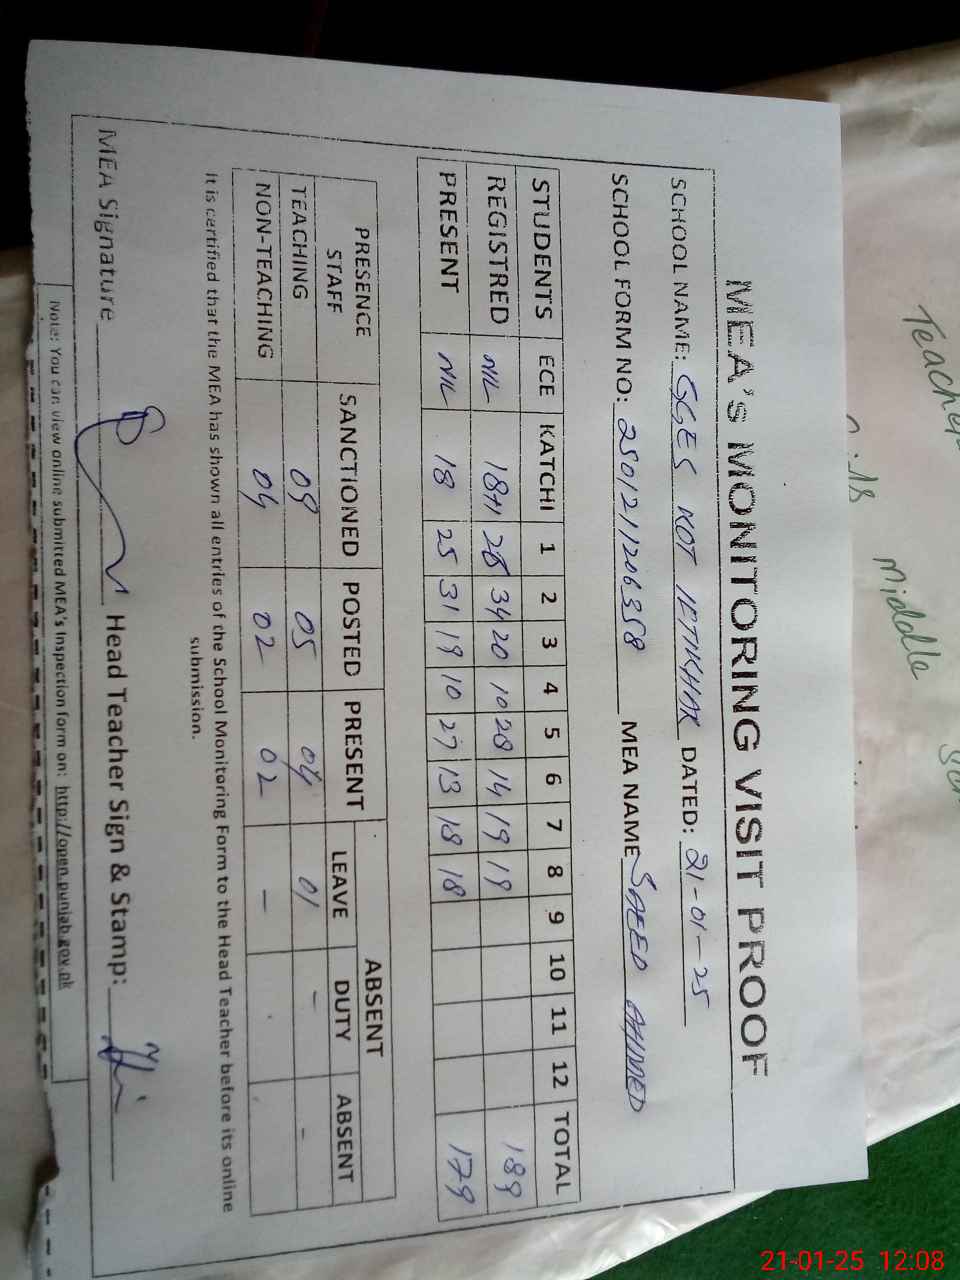 MEA'S MONITORING VISIT PROOF
SCHOOL NAME: GGES KOT IFTIKHAR DATED: 21-01-25
SCHOOL FORM NO: 250121126358 MEA NAME SAEED AHMED
STUDENTS ECE KATCHI 1 2 3 4 5 6 7 8 9 10 11 12 TOTAL
REGISTRED NIL 18+1 26 34 20 10 28 14 19 19 189
PRESENT NIL 18 25 31 19 10 27 13 18 18 179
PRESENCE STAFF SANCTIONED POSTED PRESENT ABSENT
LEAVE DUTY ABSENT
TEACHING 09 05 04 01 - -
NON-TEACHING 04 02 02 -
It is certified that the MEA has shown all entries of the School Monitoring Form to the Head Teacher before its online
submission.
MEA Signature Head Teacher Sign & Stamp:
Note: You can view online submitted MEA's Inspection form on: http://open.punjab.gov.pk
Middle
21-01-25 12:08